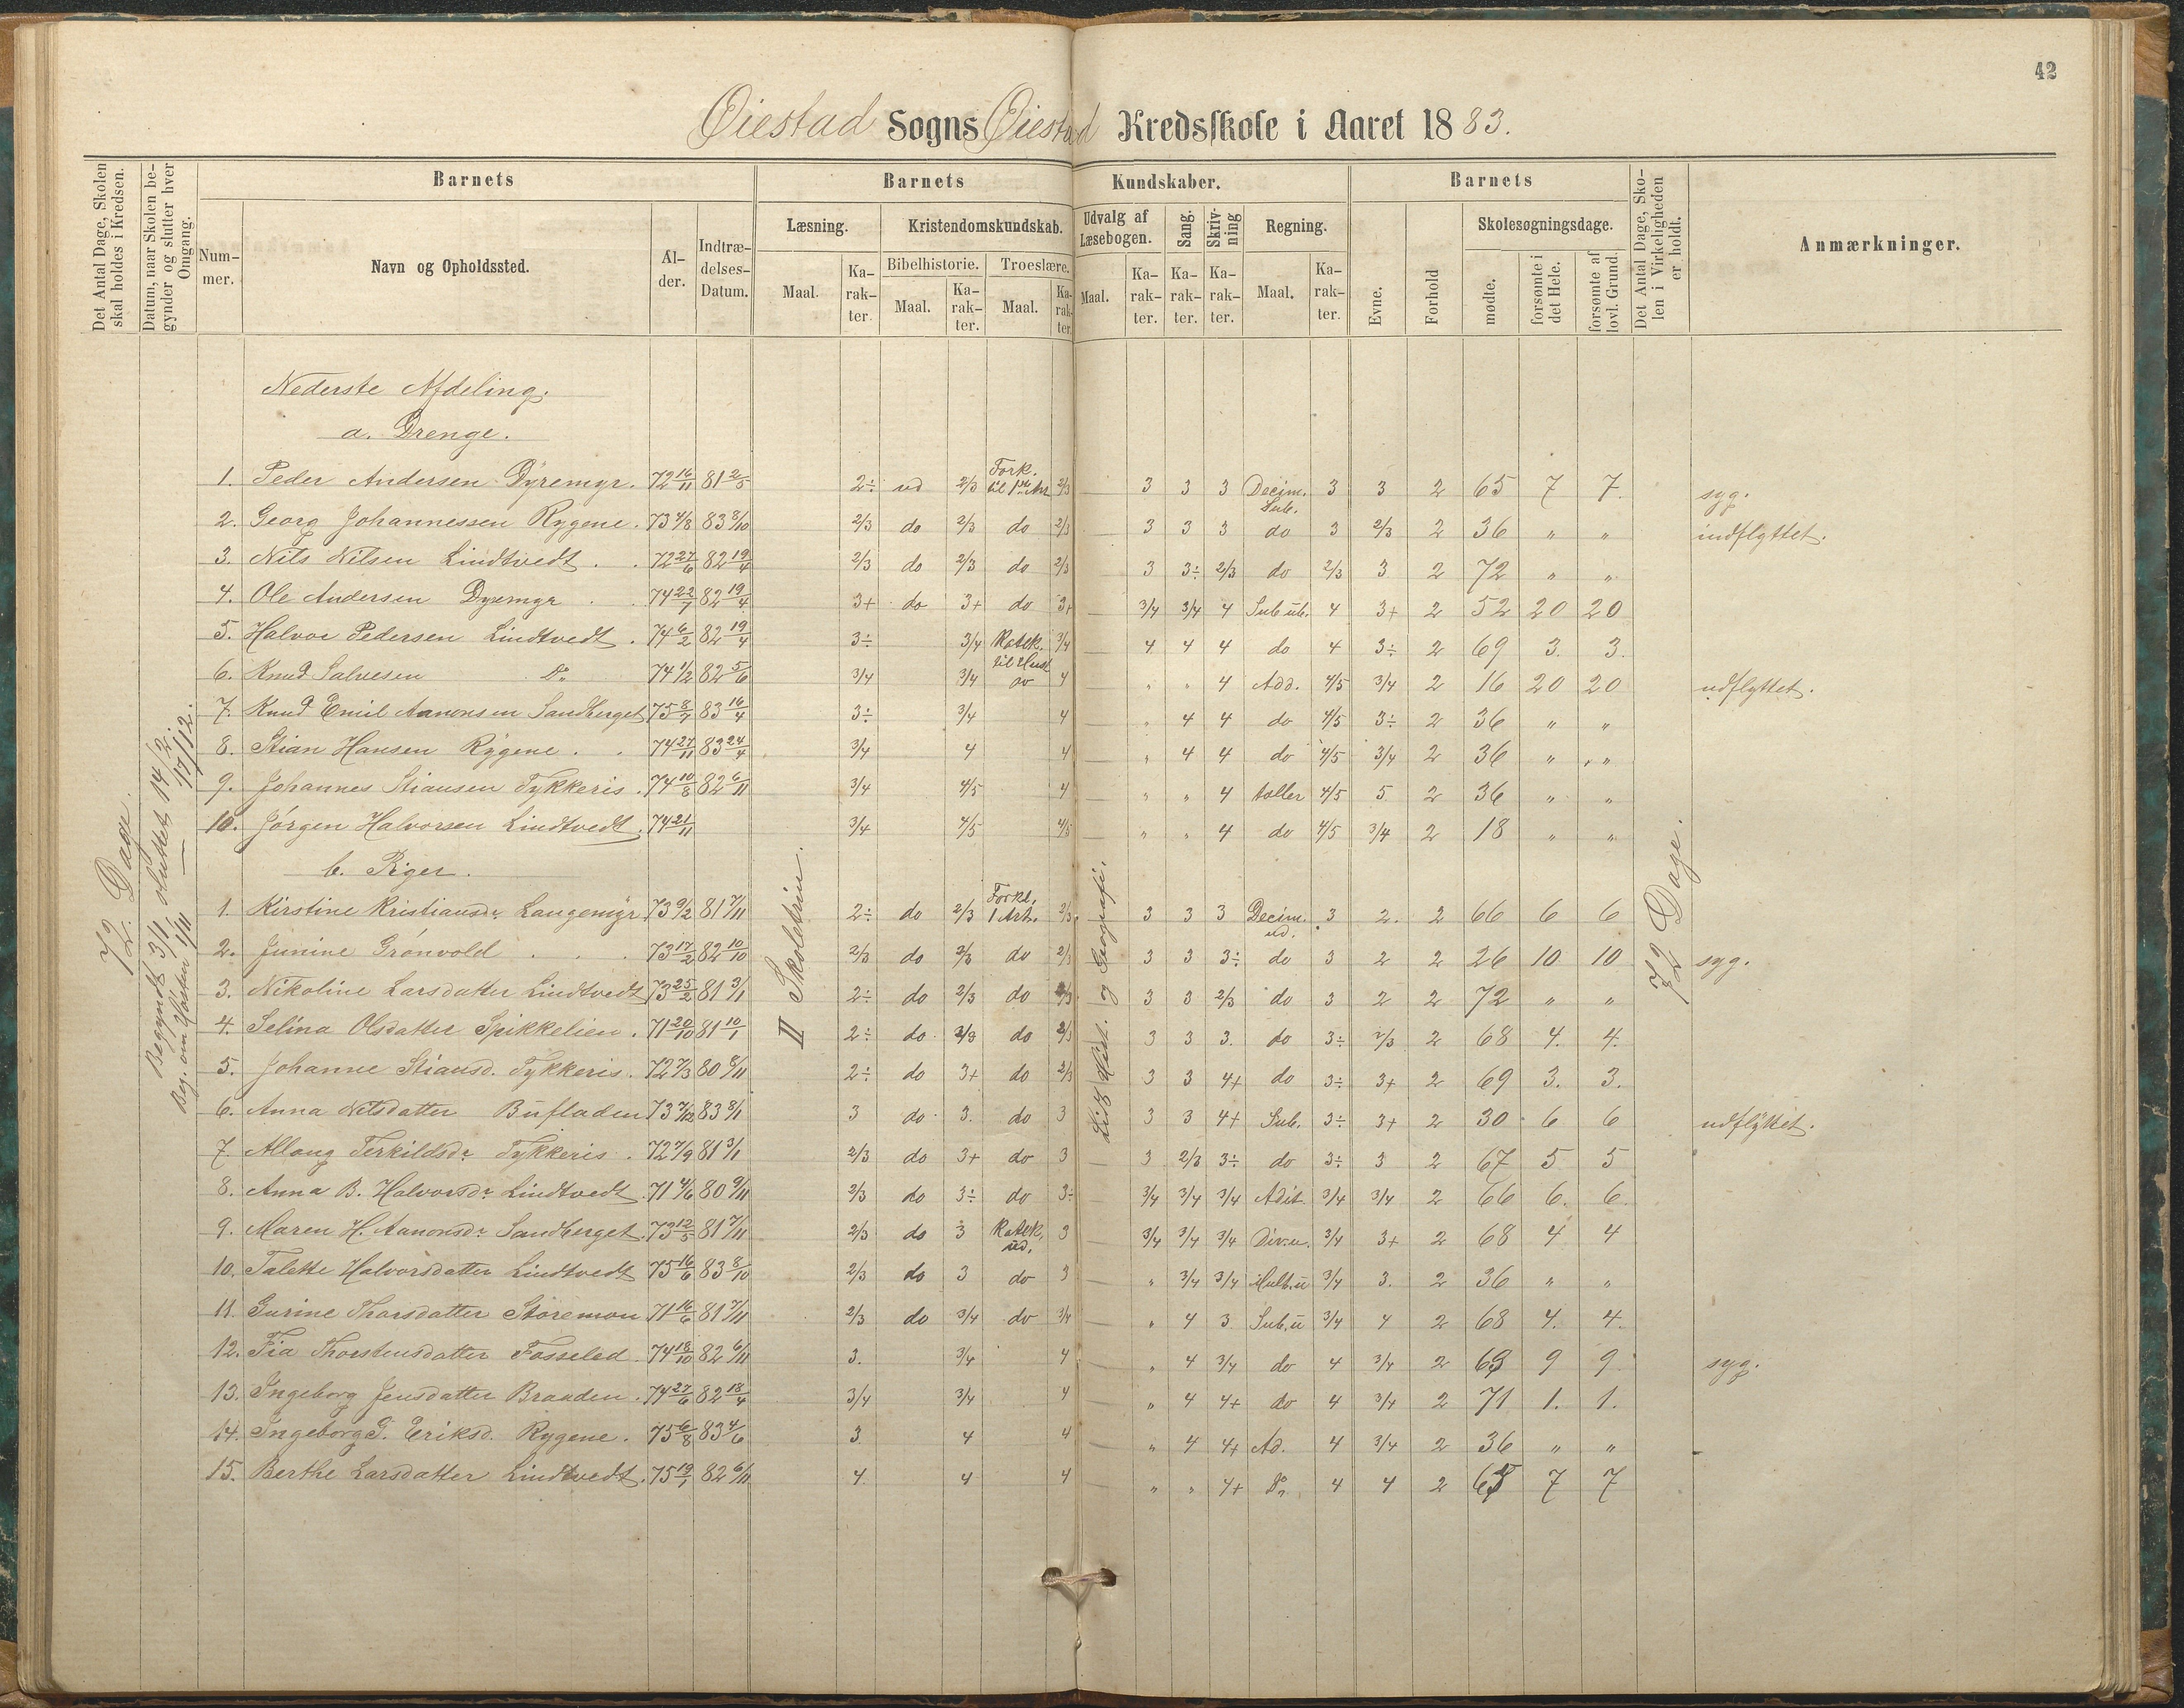 42
Øiestad Sogns Øiestad Kredsskole i Aaret 1883.
Det Antal Dage, Skolen skal holdes i Kredsen.
Datum, naar Skolen begynder og slutter hver Omgang.
Barnets
Nummer.
Navn og Opholdssted.
Alder.
Indtrædelses-Datum.
Barnets Kundskaber.
Læsning.
Maal.
Karakter.
Kristendomskundskab.
Bibelhistorie.
Maal.
Karakter.
Troeslære.
Maal.
Karakter.
Udvalg af Læsebogen.
Maal.
Karakter.
Sang.
Karakter.
Skrivning
Karakter.
Regning.
Maal.
Karakter.
Barnets
Evne.
Forhold
Skolesøgningsdage.
mødte.
forsømte i det Hele.
forsømte af lovl. Grund.
Det Antal Dage, Skolen i Virkeligheden er holdt.
Anmærkninger.
72. Dage.
Begyndt 3/1 sluttet 14/2.
Beg. om Høsten 1/11 — 17/12.
II Skoletrin.
Hist. og Geografi.
72 Dage.
Nederste Afdeling.
a. Drenge.
1. Peder Andersen Dyremyr. 72 16/11 81 2/5 2÷ ud 2/3 Fork. til 1ste Art 2/3 3 3 3 Decim. Sub. 3 3 2 65 7 7. syg.
2. Georg Johannessen Rygene. 73 4/8 83 8/10 2/3 do 2/3 do 2/3 3 3 3 do 3 2/3 2 36 " " indflyttet.
3. Nils Nilsen Lindtvedt . . 72 27/6 82 19/4 2/3 do 2/3 do 2/3 3 3÷ 2/3 do 2/3 3 2 72 " "
4. Ole Andersen Dyremyr . . 74 22/7 82 19/4 3+ do 3+ do 3+ 3/4 3/4 4 Sub ub. 4 3+ 2 52 20 20
5. Halvor Pedersen Lindtvedt . 74 6/2 82 19/4 3÷ 3/4 Katek. 3/4 4 4 4 do 4 3÷ 2 69 3. 3.
6. Knud Salvesen Do 74 1/2 82 5/6 3/4 3/4 4 " " 4 Add. 4/5 3/4 2 16 20 20 udflyttet.
7. Knud Emil Aanonsen Sandberget 75 8/7 83 16/4 3÷ 3/4 4 " 4 4 do 4/5 3÷ 2 36 " "
8. Stian Hansen Rygene . . 74 27/11 83 24/4 3/4 4 4 " 4 4 do 4/5 3/4 2 36 " "
9. Johannes Stiansen Tykkeris . 74 10/8 82 6/11 3/4 4/5 4 " " 4 taller 4/5 5 2 36 " "
10. Jørgen Halvorsen Lindtvedt . 74 21/11 3/4 4/5 4/5 " " 4 do 4/5 3/4 2 18 " "
b. Piger.
1. Kirstine Kristiansdr Langemyr 73 9/2 81 7/11 2÷ do 2/3 Forkl. 1 Art. 2/3 3 3 3 Decim. ud. 3 2. 2 66 6 6
2. Junine Grønvold . . . 73 17/2 82 10/10 2/3 do 2/3 do 2/3 3 3 3÷ do 3 2 2 26 10 10 syg.
3. Nikoline Larsdatter Lindtvedt 73 25/2 81 3/1 2÷ do 2/3 do 2/3 3 3 2/3 do 3 2 2 72 " "
4. Selina Olsdatter Spikkelien . 71 20/10 81 10/1 2÷ do 2/3 do 2/3 3 3 3. do 3÷ 2/3 2 68 4. 4.
5. Johanne Stiansd. Tykkeris. 72 7/3 80 8/11 2÷ do 3+ do 2/3 3 3 4+ do 3÷ 3+ 2 69 3. 3.
6. Anna Nilsdatter Bufladen 73 7/12 83 8/1 3 do 3. do 3 3 3 4+ Sub. 3÷ 3+ 2 30 6 6 udflyttet.
7. Allaug Terkildsdr Tykkeris . 72 7/9 81 3/1 2/3 do 3+ do 3 3 2/3 3÷ do 3÷ 3 2 67 5 5
8. Anna B. Halvorsdr Lindtvedt 71 4/6 80 9/11 2/3 do 3÷ do 3÷ 3/4 3/4 3/4 Adit. 3/4 3/4 2 66 6. 6.
9. Maren H. Aanonsdr Sandberget. 73 12/5 81 7/11 2/3 do 3 Katek. ud. 3 3/4 3/4 3/4 Div.u. 3/4 3+ 2 68 4 4
10. Talette Halvorsdatter Lindtvedt 75 16/6 83 8/10 2/3 do 3 do 3 " 3/4 3/4 Mult.u 3/4 3. 2 36 " "
11. Gurine Thorsdatter Storemon 71 16/6 81 7/11 2/3 do 3/4 do 3/4 " 4 3. Sub.u 3/4 4 2 68 4. 4.
12. Fia Thorstensdatter Fosseled . 74 18/10 82 6/11 3. 3/4 4 " 4 3/4 do 4 3/4 2 63 9 9 syg.
13. Ingeborg Jensdatter Braaden . 74 27/6 82 18/4 3/4 3/4 4 " 4 4+ do 4 3/4 2 71 1. 1.
14. Ingeborg G. Eriksd. Rygene . 75 6/8 83 4/6 3. 4 4 " 4 4+ Ad. 4 3/4 2 36 " "
15. Berthe Larsdatter Lindtvedt . 75 19/1 82 6/11 4. 4 4 " " 4+ Do 4 4 2 65 7 7